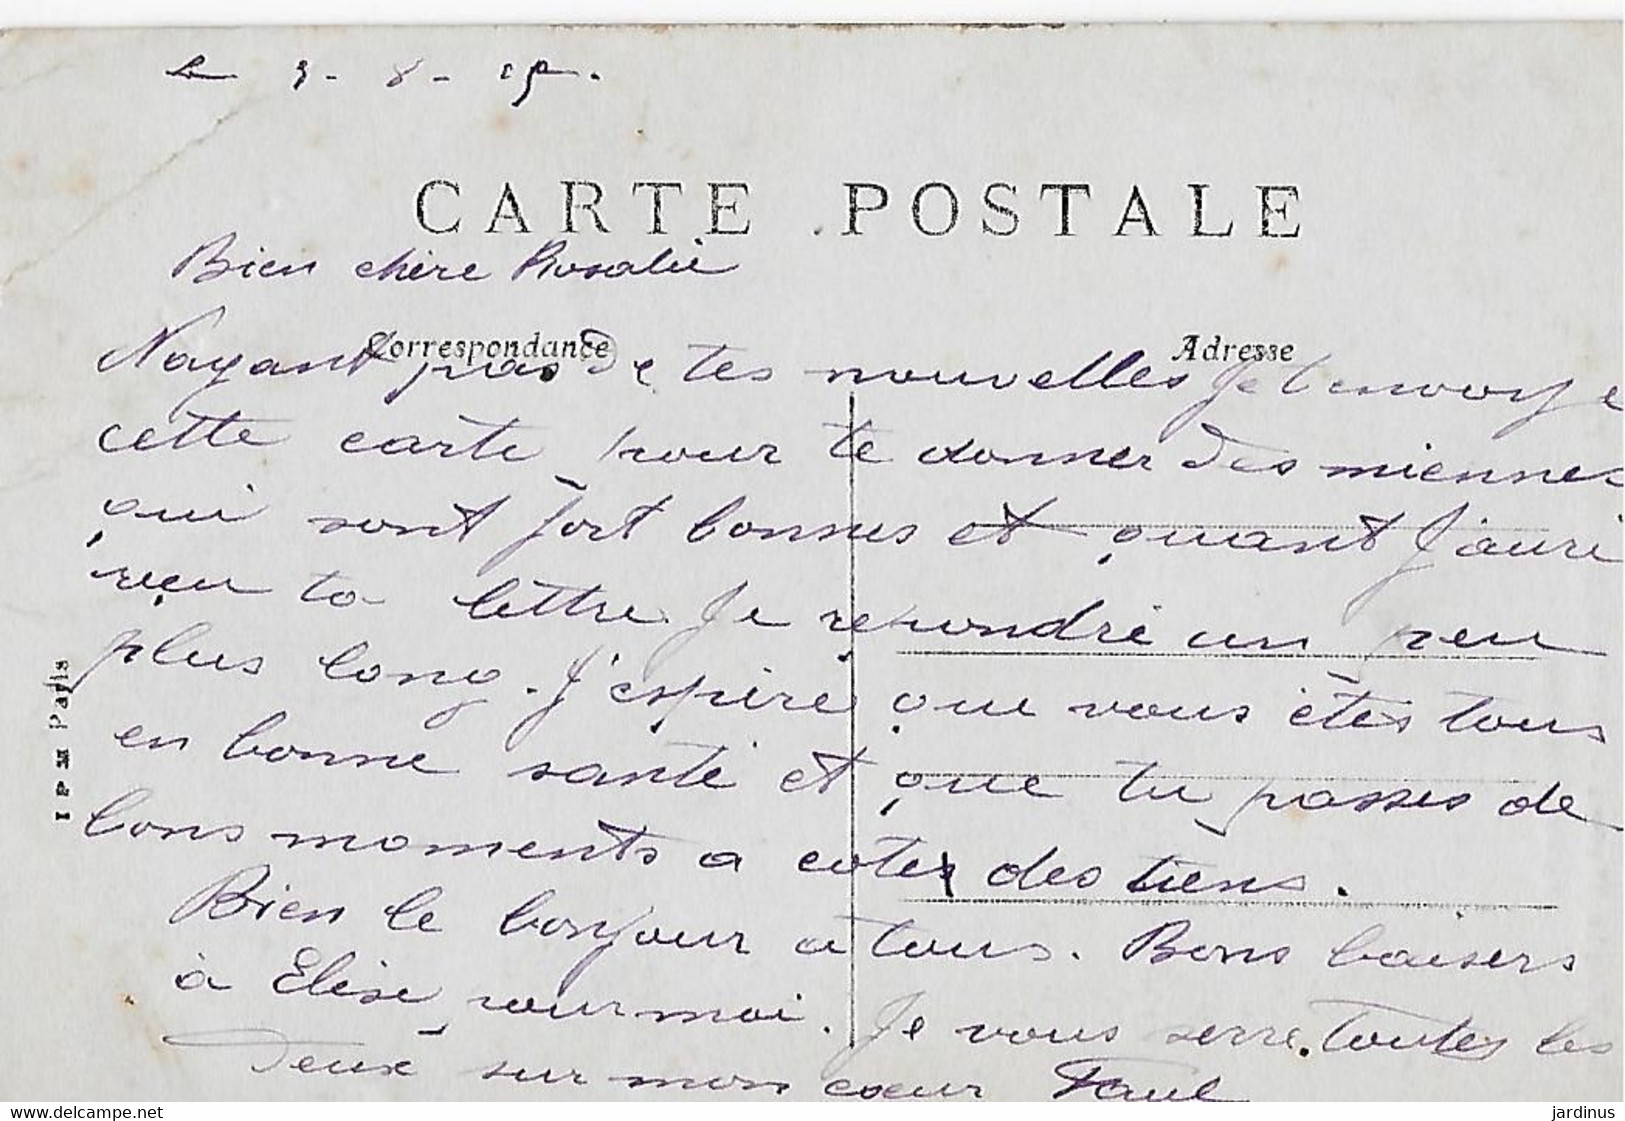 le 3 - 8 - 15.
CARTE POSTALE
Bien chère Rosalie
Correspondance
Adresse
Nayant pas de tes nouvelles Je t'envoye
cette carte pour te donner des miennes
qui sont fort bonnes et quant J'auré
reçu ta lettre Je repondré un peu
plus long. J'espère que vous êtes tous
en bonne santé et que tu passes de
bons moments a coter des tiens.
Bien le bonjour a tous. Bons baisers
à Elise pour moi. Je vous serre toutes les
Deux sur mon cœur Paul
I P M Paris
www.delcampe.net
jardinus